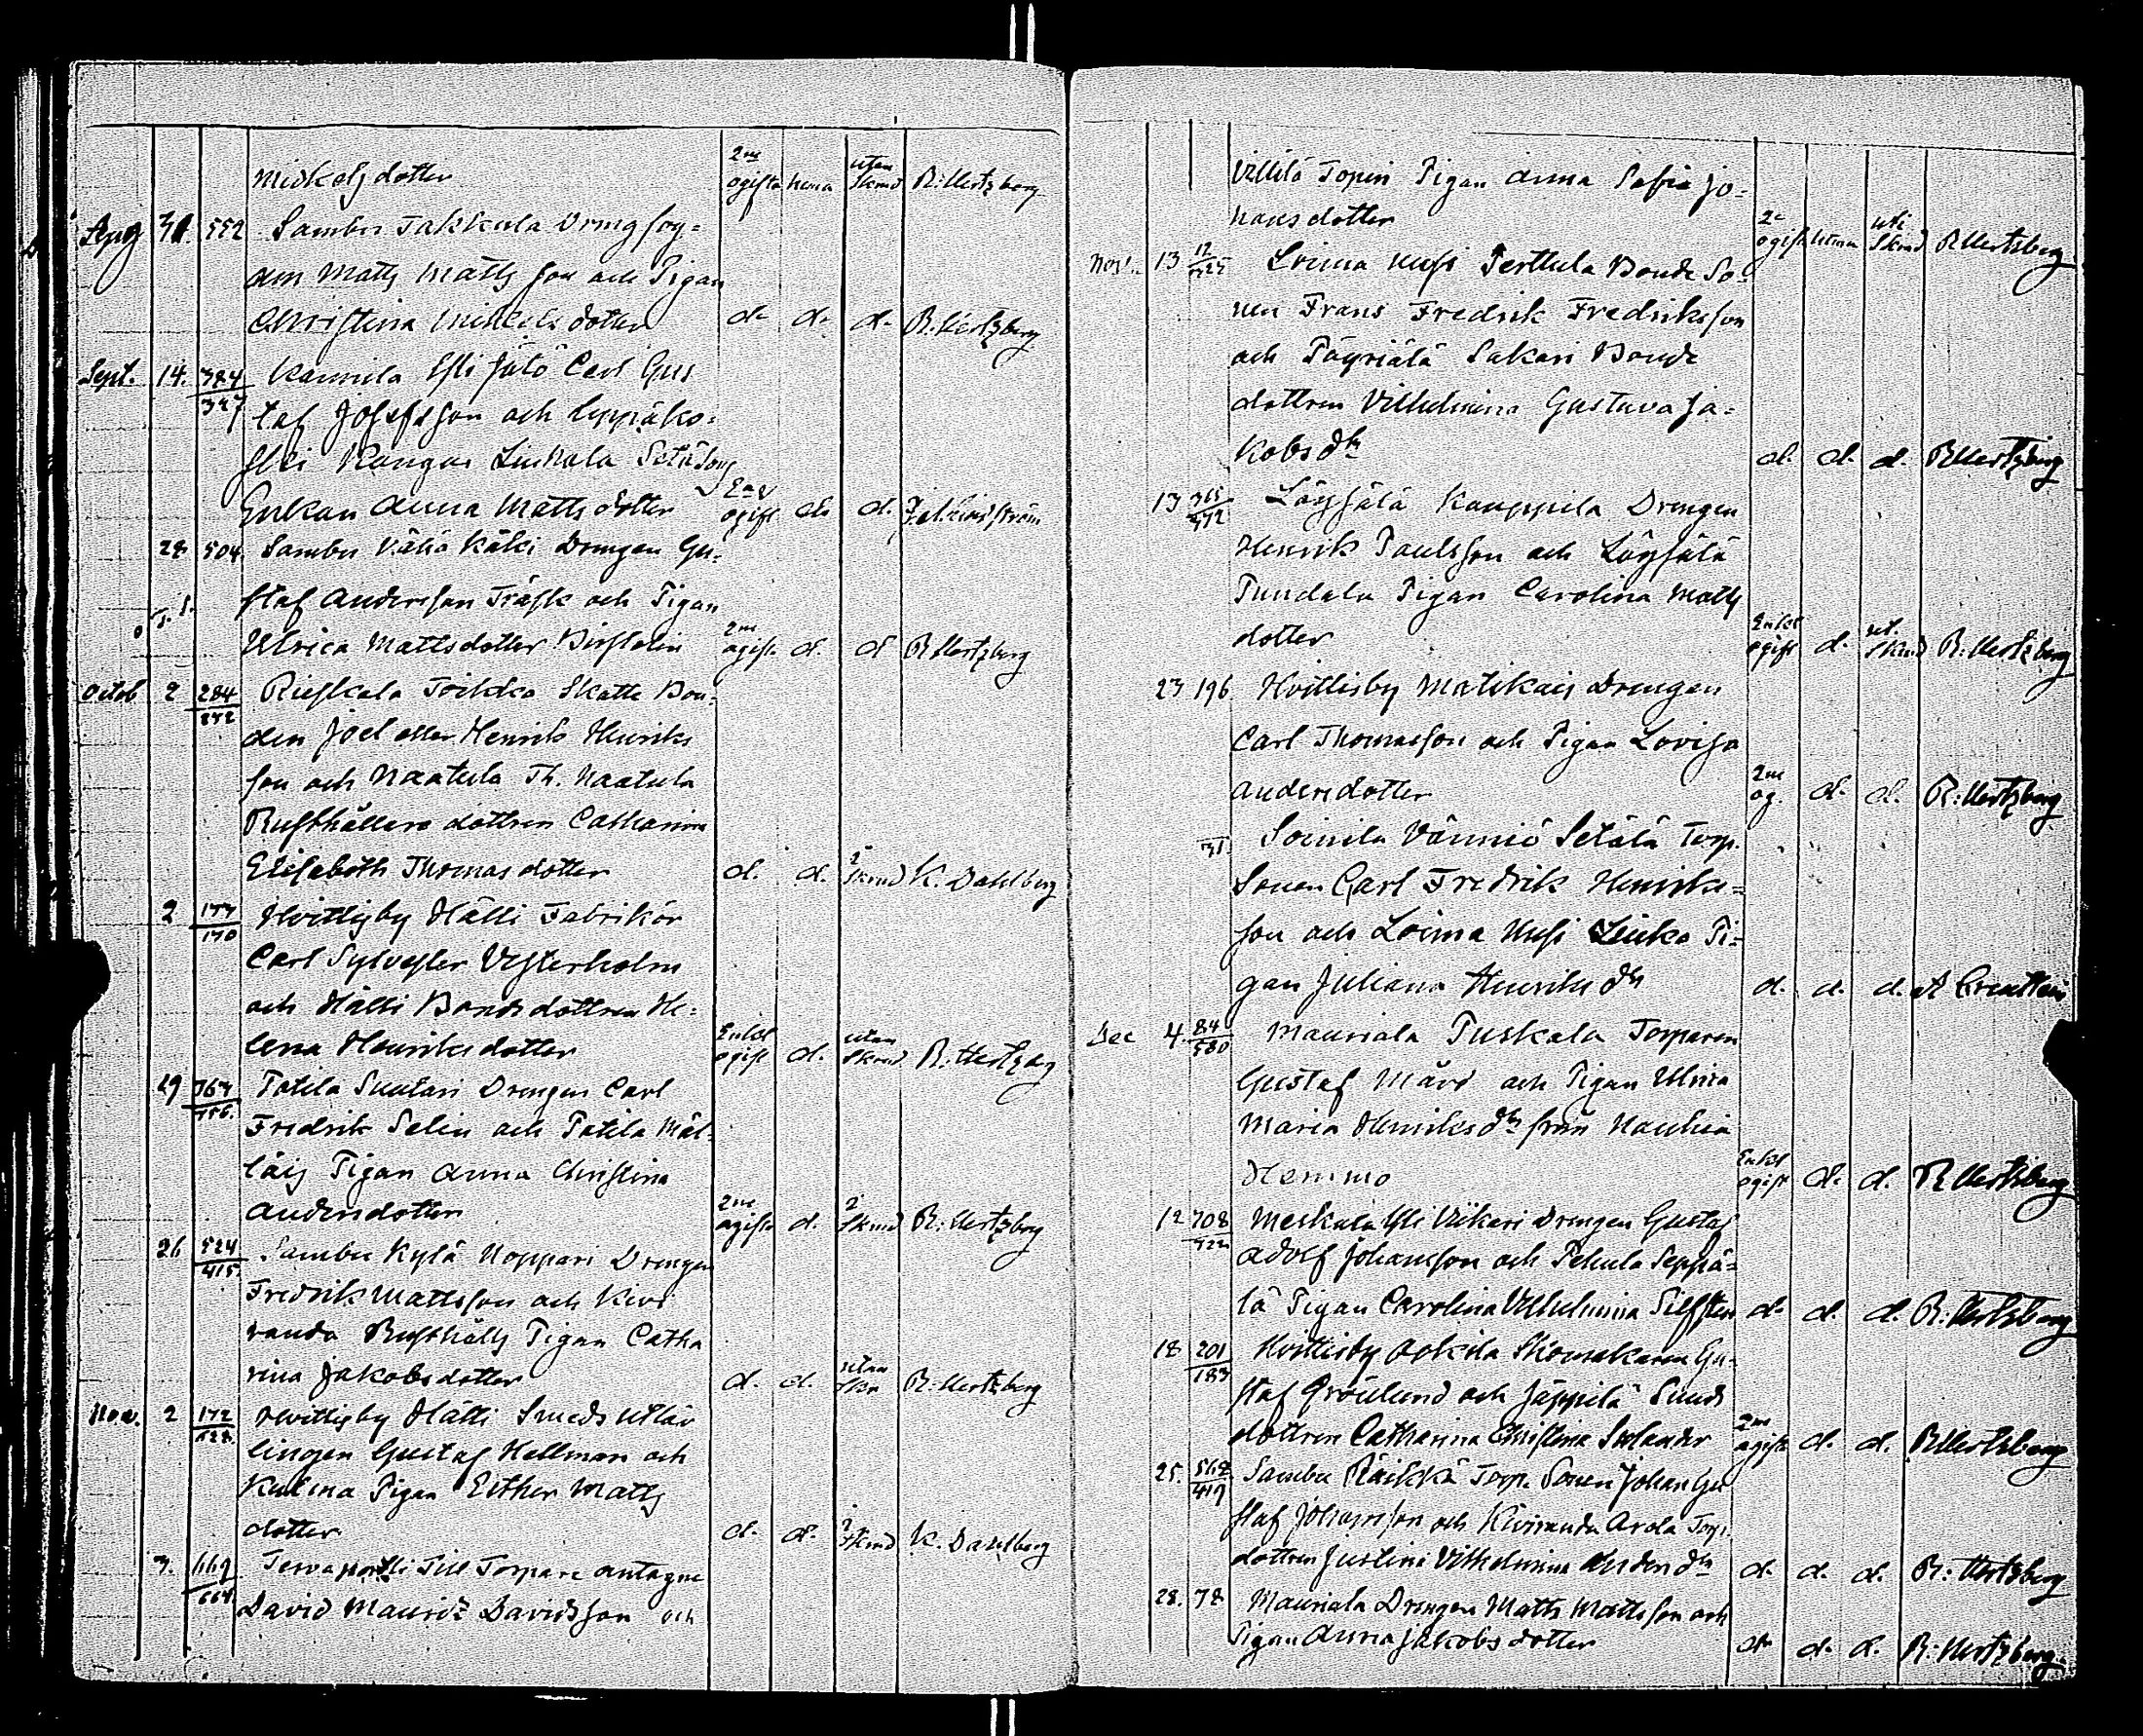 Miskelsdotter 2ne ogifta hema utan Skrud R: Hertzberg
Aug 31. 552 Sambu Jakkula Drengfog=
den Matts Mattsson och Pigan
Christina Miskelsdotter d. d. d. R. Hertzberg
Sept. 14. 384/347 Kaunila Esli Jälö Carl Gus
taf Josefsson och Leppäko=
ski Kangas Liukala Setä Torp
Enkan Anna Mattsdotter d. d.
28 504 Sambu Vähä Käki Drengen Gu=
staf Andersson Träsk och Pigan
Ulrica Mattsdotter 2ne ogifta d. d R Hertzberg
Octob 2 284 Rieskala Joikka Skatte Bon=
den Joel eller Henrik Henriks
son och Naatula Th. Naatula
Rusthållare dottren Catharina
Elisabeth Thomasdotter d. d. i Skrud K. Dahlberg
2 177/170 Hvittisby Hälli Fabrikör
Carl Sylvester Vesterholm
och Hälli Bondsdottren He=
lena Henriksdotter Enkel ogift d. utan Skrud R. Hertzberg
29 Potila Suutari Drengen Carl
Fredrik Selin och Potila Mäl=
läis Pigan Anna Christina
Andersdotter 2ne ogifta d. i Skrud R: Hertzberg
26 524/415 Sambu Kylä Noppari Drengen
Fredrik Mattsson och Kivi
randa Rusthålls Pigan Catha
rina Jakobsdotter d. d. utan Skr R: Hertzberg
Nov. 2 172/128 Hvittisby Hälli Smeds
lingen Gustaf Hellman och
Pigan Esther Matts
dotter d. d. i Skrud K. Dahlberg
3. 669/664 Till Torpare antagne
David Mauritz Davidsson och
Villilä Topin Pigan Anna Sofia Jo=
hansdotter 2e ogifta hema uti Skrud R Hertzberg
Nov. 13 Loima Uusi Perttula Bonde So=
nen Frans Fredrik Fredriksson
och Päyriälä Sakari Bonde
dottren Vilhelmina Gustava Ja=
kobsdtr d. d. d. R Hertzberg
13 Kauppila Drengen
Henrik Paulsson och
Pundala Pigan Carolina Matts
dotter Enkel ogift d. ut. Skrud R: Hertzberg
23 196 Hvittisby Matikais Drengen
Carl Thomasson och Pigan Lovisa
Andersdotter 2ne og. d. d. R: Hertzberg
Soinila Vänniö Setälä Torp.
Sonen Carl Fredrik Henriks=
son och Loima Uusi Liuko Pi=
gan Juliana Henriksdtr d. d. d.
Dec 4. 84/580 Mauriala Puskala Torparen
Gustaf Mård och Pigan Ulrica
Maria Henriksdtr från Nauhia
Hemmo Enkel ogift d. d. R Hertzberg
12 708 Meskala Yli Vikari Drengen Gustaf
Adolf Johansson och Pehula Seppä=
lä Pigan Carolina Vilhelmina d. d. d. R: Hertzberg
18 201/183 Hvittisby Skomakaren Gu=
staf Grönlund och Jäppilä Smeds
dottren Catharina Christina Selander 2ne ogifta d. d. R Hertzberg
25. 562/419 Sambu Räikkä Torp. Sonen Johan Gu
staf Johansson och Kiviranda Arola Torp
dottren Justina Vilhelmina d. d. d. R: Hertzberg
28. 78 Mauriala Drengen Matts Mattsson och
Pigan Anna Jakobsdotter d. d. d. R: Hertzberg